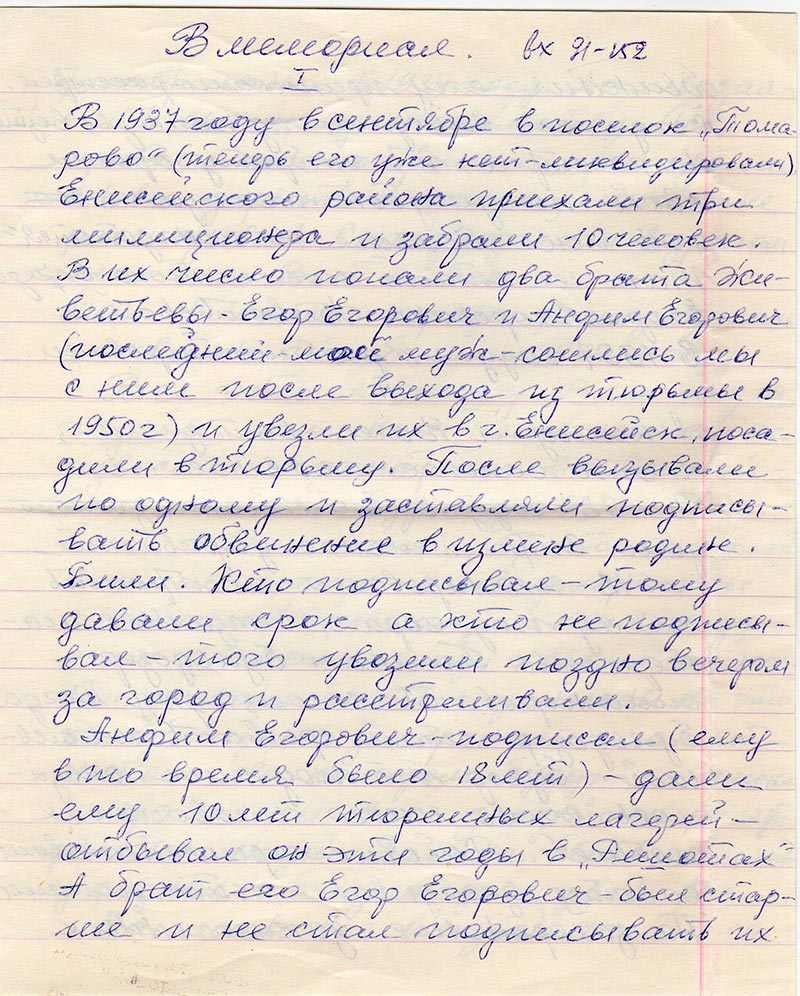 В мемориал. вх 91-152
I
В 1937 году в сентябре в поселок „Тома-
рово“ (теперь его уже нет-ликвидировали)
Енисейского района приехали три
милиционера и забрали 10 человек.
В их число попали два брата Жи-
ветьевы - Егор Егорович и Анфим Егорович
(последний - мой муж - сошлись мы
с ним после выхода из тюрьмы в
1950г) и увезли их в г. Енисейск, поса-
дили в тюрьму. После вызывали
по одному и заставляли подписы-
вать обвинение в измене родине.
Били. Кто подписывал - тому
давали срок а хто не подписы-
вал - того увозили поздно вечером
за город и расстреливали.
Анфим Егорович - подписал (ему
в то время было 18 лет) - дали
ему 10 лет тюремных лагерей -
отбывал он эти годы в „Решотах“
А брат его Егор Егорович - был стар-
ше и не стал подписывать их